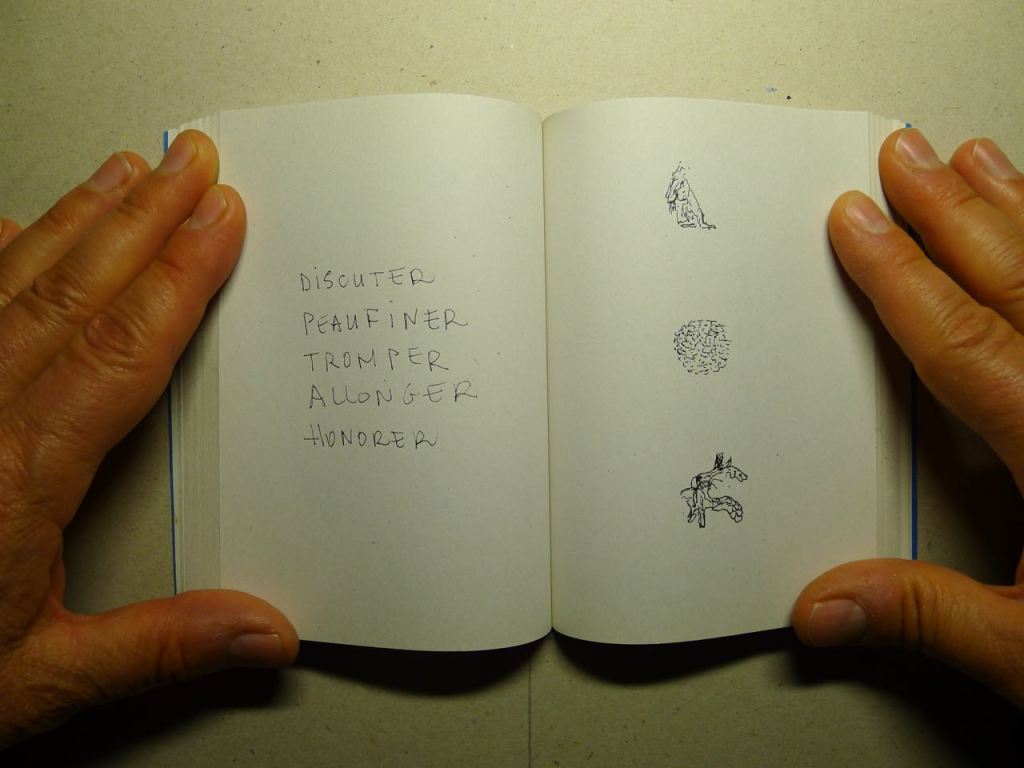 DISCUTER
PEAUFINER
TROMPER
ALLONGER
HONORER